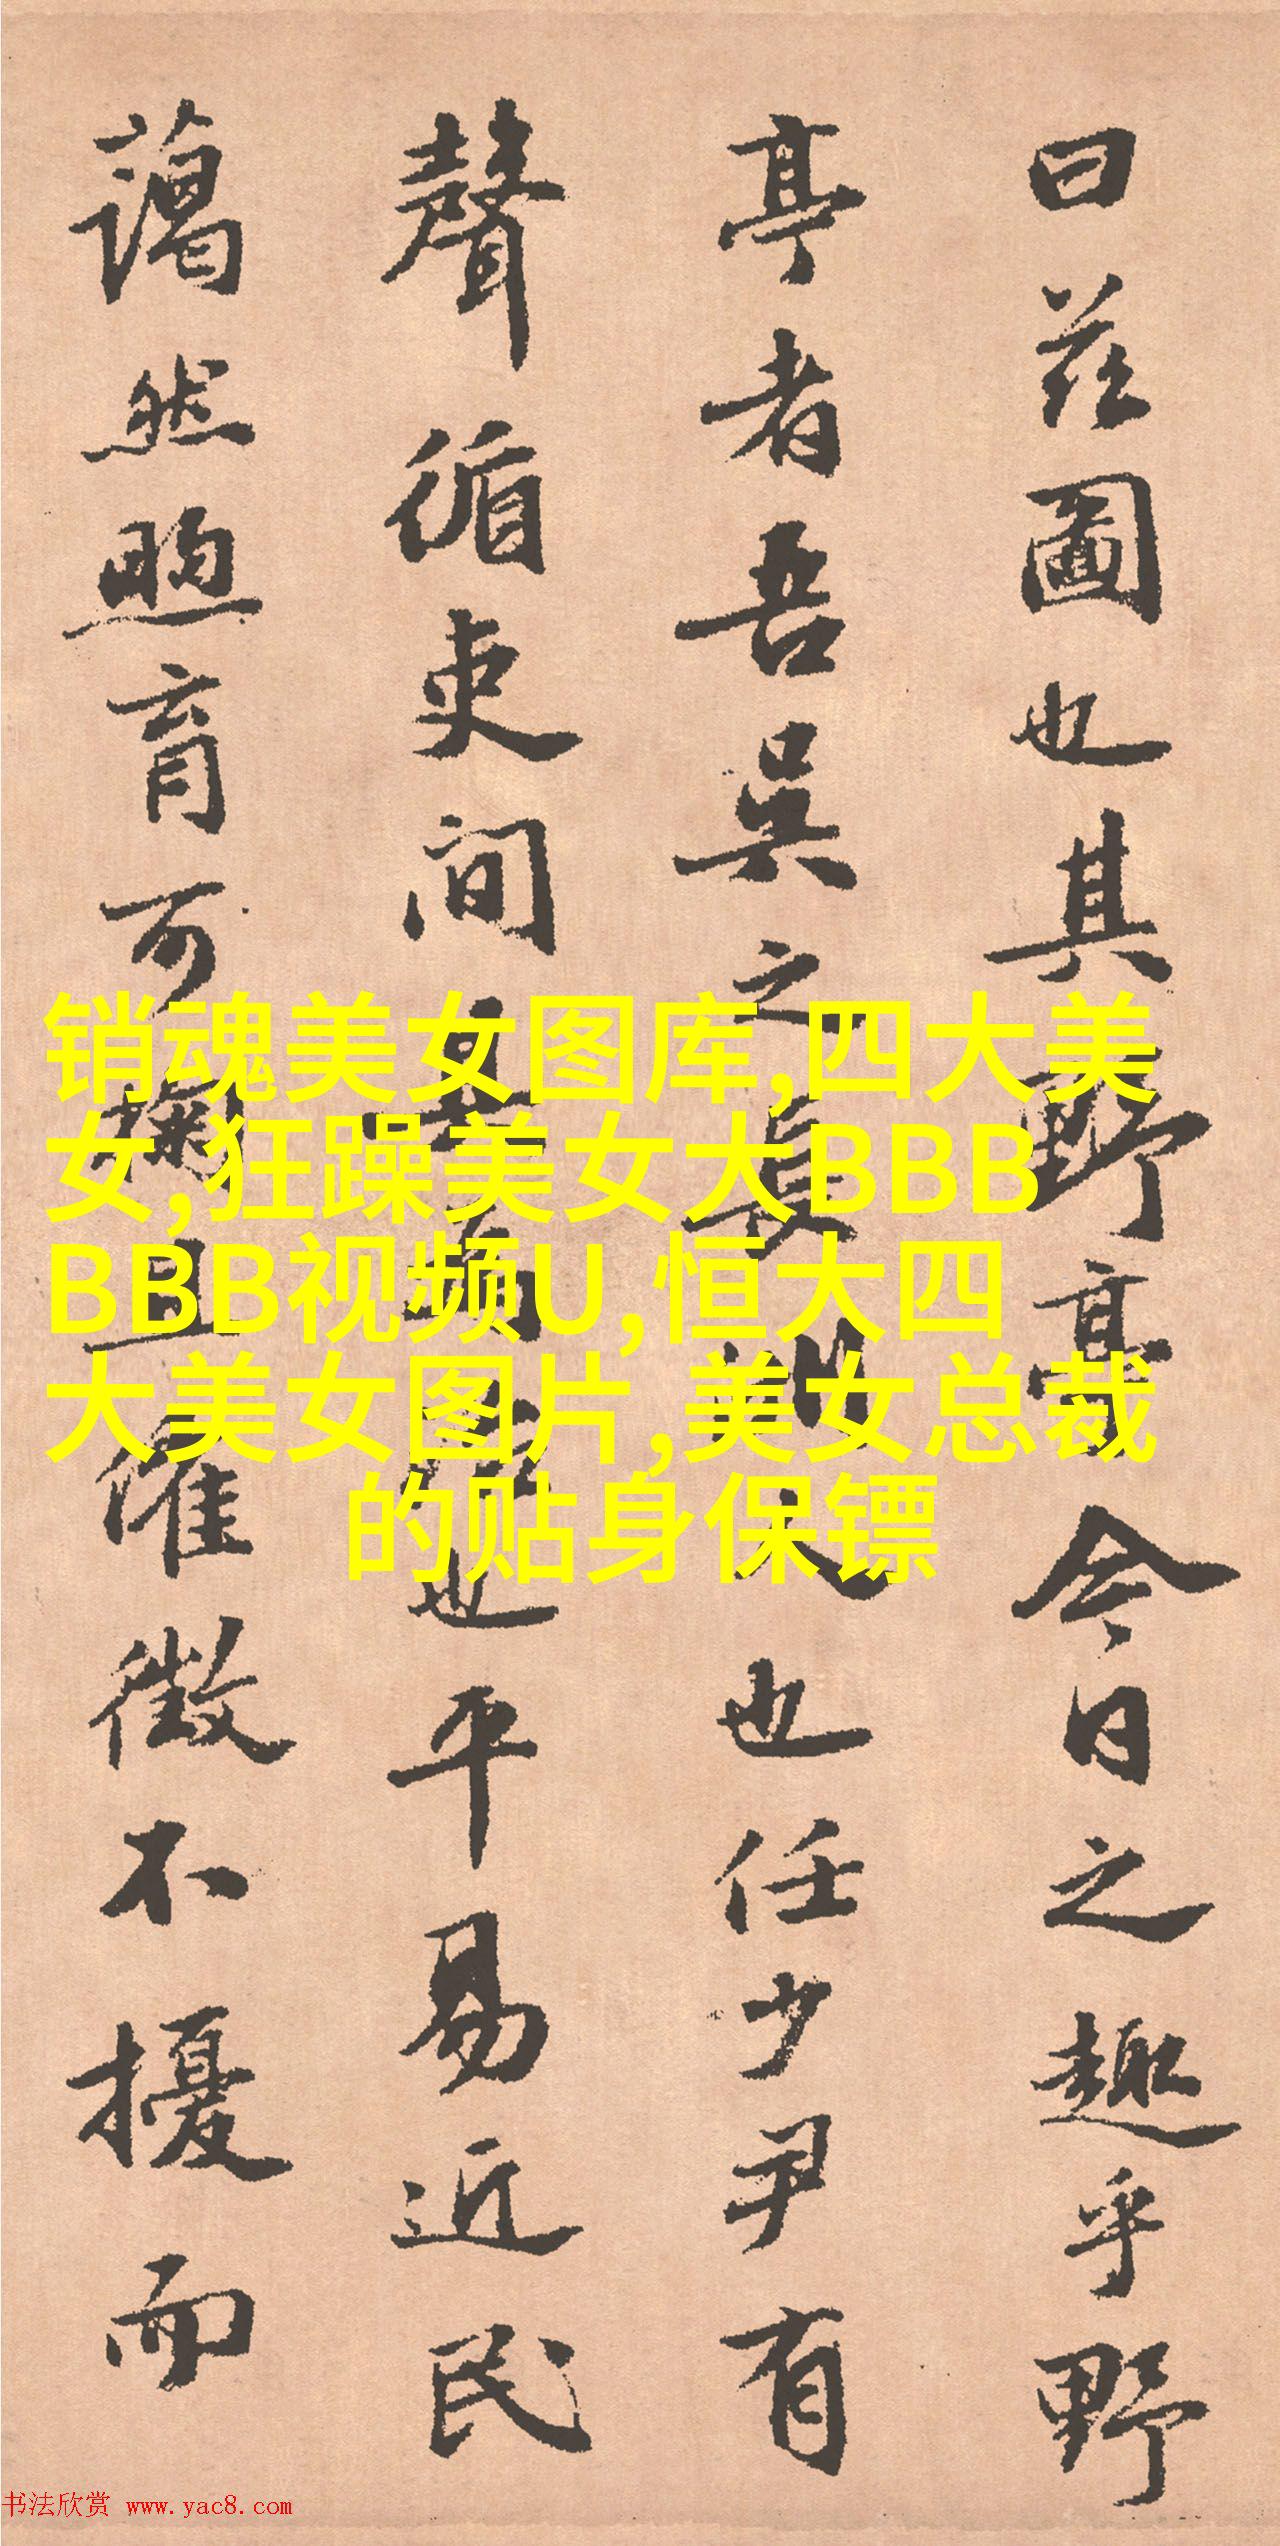 曰茲圖也其野亭今日之趣乎野
亭者吾吳之長洲人也任少尹有
聲循吏间其為也平易近民
藹然煦育可掬且催徴不擾而
销魂美女图库,四大美
女,狂躁美女大BBB
BBB视频U,恒大四
大美女图片,美女总裁
的贴身保镖
书法欣赏 www.yac8.com